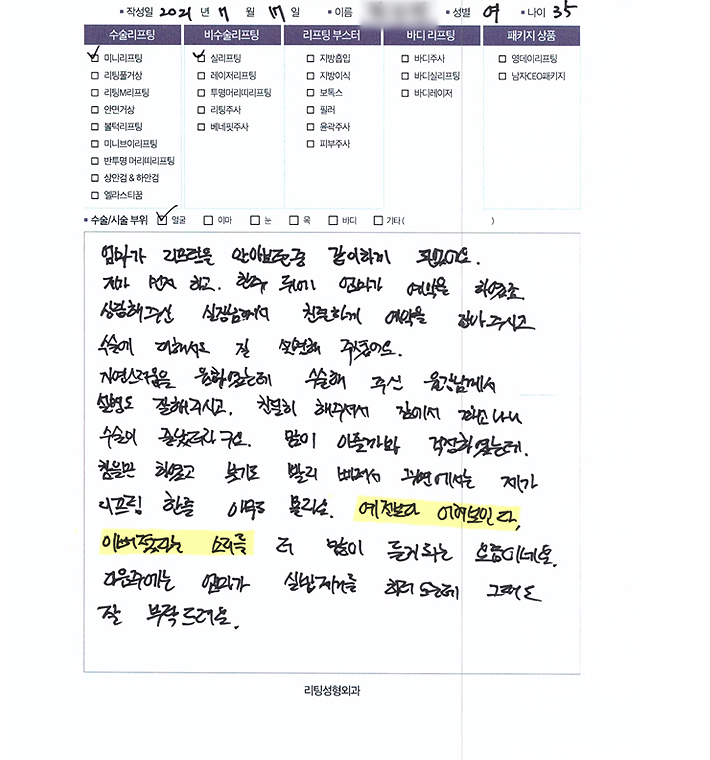 ▪ 작성일 2021 년 7 월 17 일 ▪ 이름 ▪ 성별 여 ▪ 나이 35
수술리프팅 비수술리프팅 리프팅 부스터 바디 리프팅 패키지 상품
미니리프팅 실리프팅 지방흡입 바디주사 영데이리프팅
리팅풀거상 레이저리프팅 지방이식 바디실리프팅 남자CEO패키지
리팅M리프팅 투명머리띠리프팅 보톡스 바디레이저
안면거상 리팅주사 필러
볼턱리프팅 베네핏주사 윤곽주사
미니브이리프팅 피부주사
반투명 머리띠리프팅
상안검 & 하안검
엘라스티꿈
▪ 수술/시술 부위 얼굴 이마 눈 목 바디 기타( )
엄마가 리프팅을 알아보던중 같이하게 되었어요.
제가 먼저 하고. 한주 뒤에 엄마가 예약을 하였죠
상담해주신 실장님께서 친절하게 예약을 잡아주시고
수술에 대해서도 잘 설명해 주셨어요.
자연스러움을 원하였는데 수술해 주신 원장님께서
설명도 잘해주시고. 친절히 해주셔서 잠에서 깨고나니
수술이 끝났더라구요. 많이 아플까봐 걱정하였는데.
참을만 하였고 붓기도 빨리 빠져서 주변에서는 제가
리프팅 한줄 아무도 몰라요. 예전보다 어려보인다,
이뻐졌다는 소리를 더 많이 듣게 되는 요즘이네요.
다음주에는 엄마가 실밥제거를 하러 오는데 그때도
잘 부탁드려요.
리팅성형외과